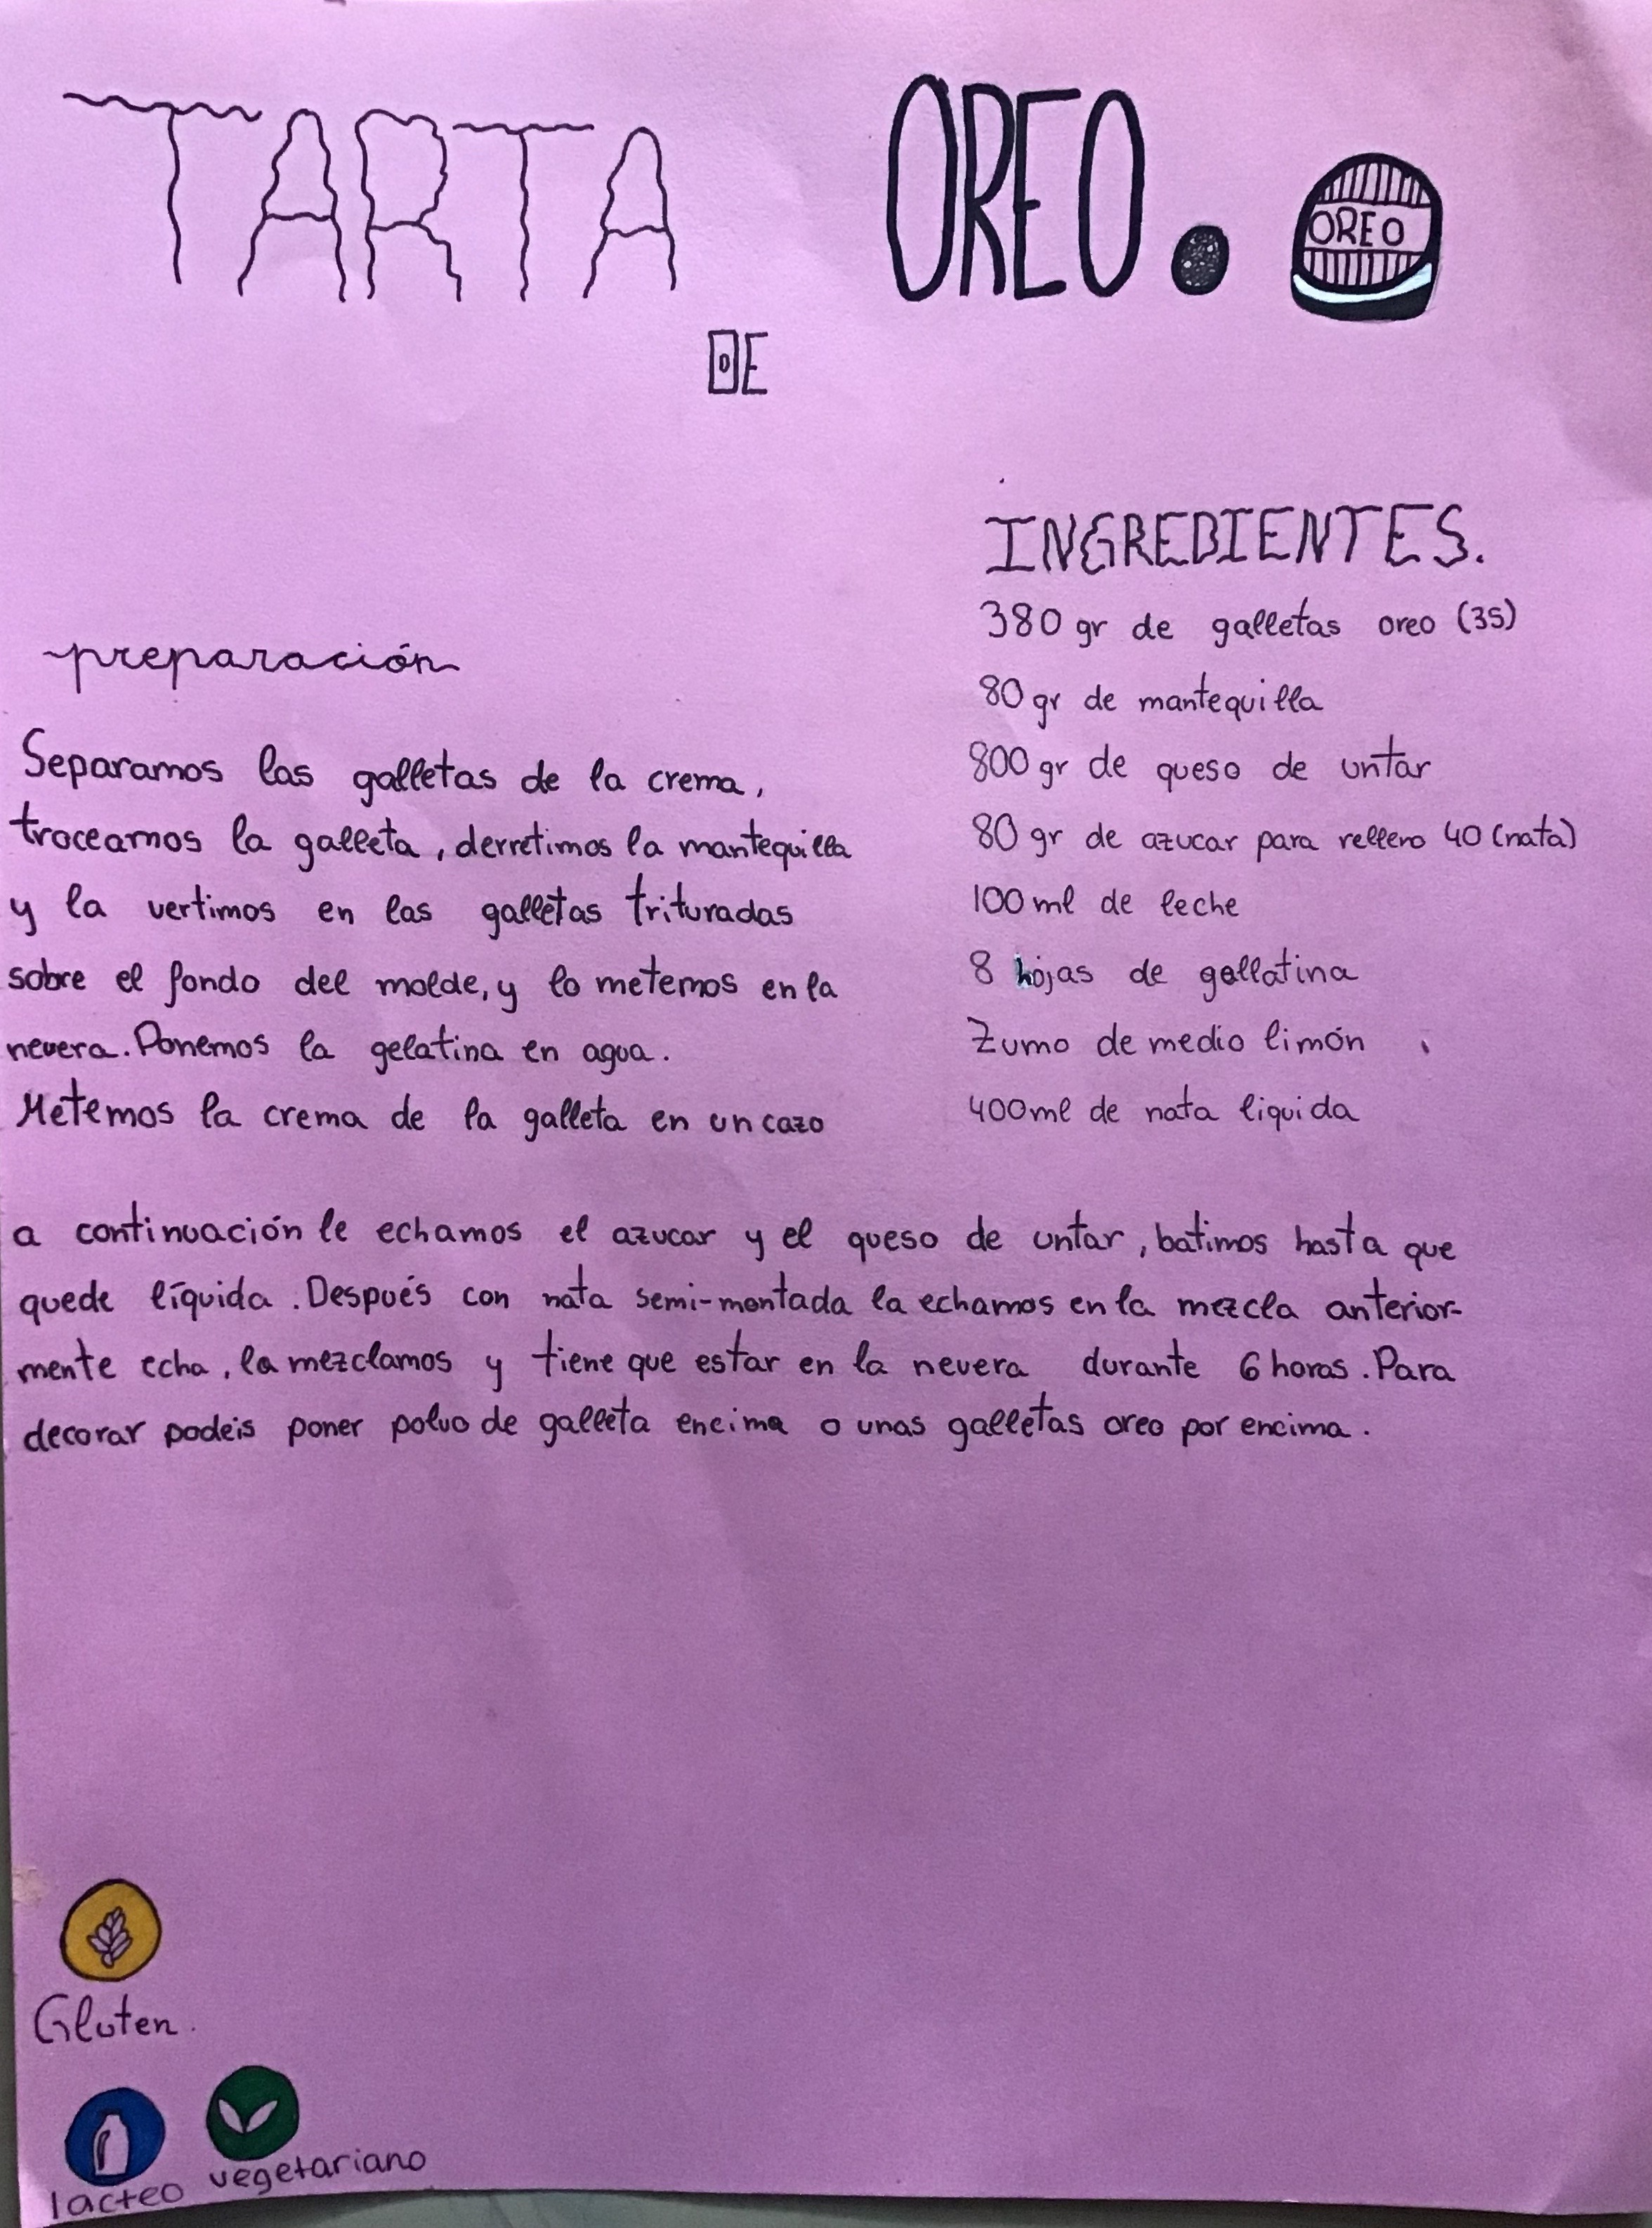 TARTA
DE
OREO.
OREO
INGREDIENTES.
380 gr de galletas oreo (35)
80 gr de mantequilla
800 gr de queso de untar
80 gr de azucar para relleno 40 (nata)
100 ml de leche
8 hojas de gallatina
Zumo de medio limón
400ml de nata liquida
preparación
Separamos las galletas de la crema,
troceamos la galleta, derretimos la mantequilla
y la vertimos en las galletas trituradas
sobre el fondo del molde, y lo metemos en la
nevera. Ponemos la gelatina en agua.
Metemos la crema de la galleta en un cazo
a continuación le echamos el azucar y el queso de untar, batimos hasta que
quede líquida. Después con nata semi-montada la echamos en la mezcla anterior-
mente echa, la mezclamos y tiene que estar en la nevera durante 6 horas. Para
decorar podeis poner polvo de galleta encima o unas galletas oreo por encima.
Gluten.
lacteo
vegetariano